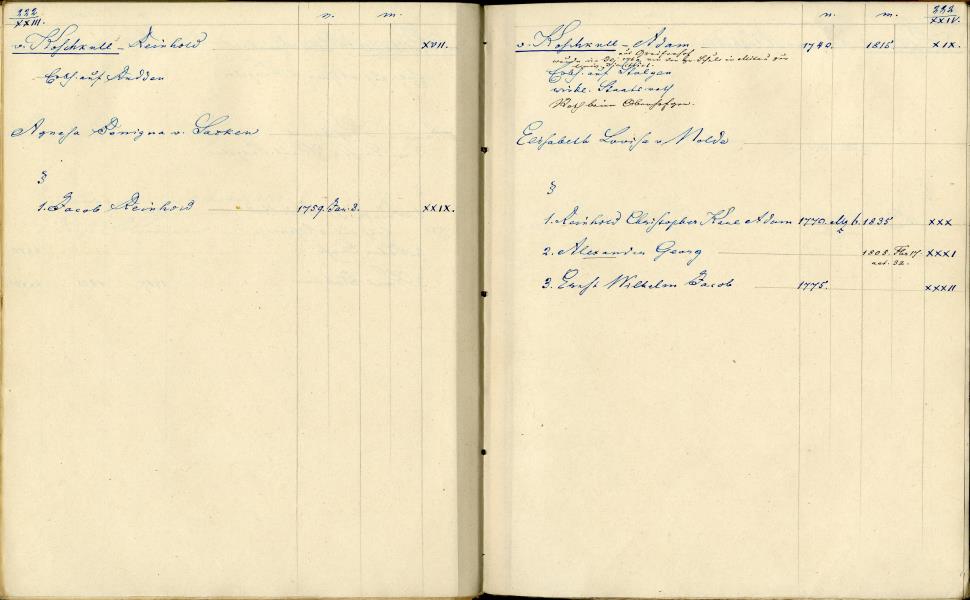 222
XXIII.
n. m.
v. Koschkull - Reinhold XVII.
Erbh. auf
Agnesa Benigna v. Sacken
§
1. Jacob Reinhold 1759. Jan. 3. XXIX.
222
XXIV.
n. m.
v. Koschkull - Adam 1740. 1815. XIX.
Erbh. auf
wirkl. Staatsrath
Rath beim
Elisabeth Lovisa v Nolde
§
1. Reinhold Christopher Karl Adam 1770. 6. 1835 XXX
2. Alexander Georg 1808. 17. XXXI
aet. 32.
3. Ernst Wilhelm Jacob 1775. XXXII